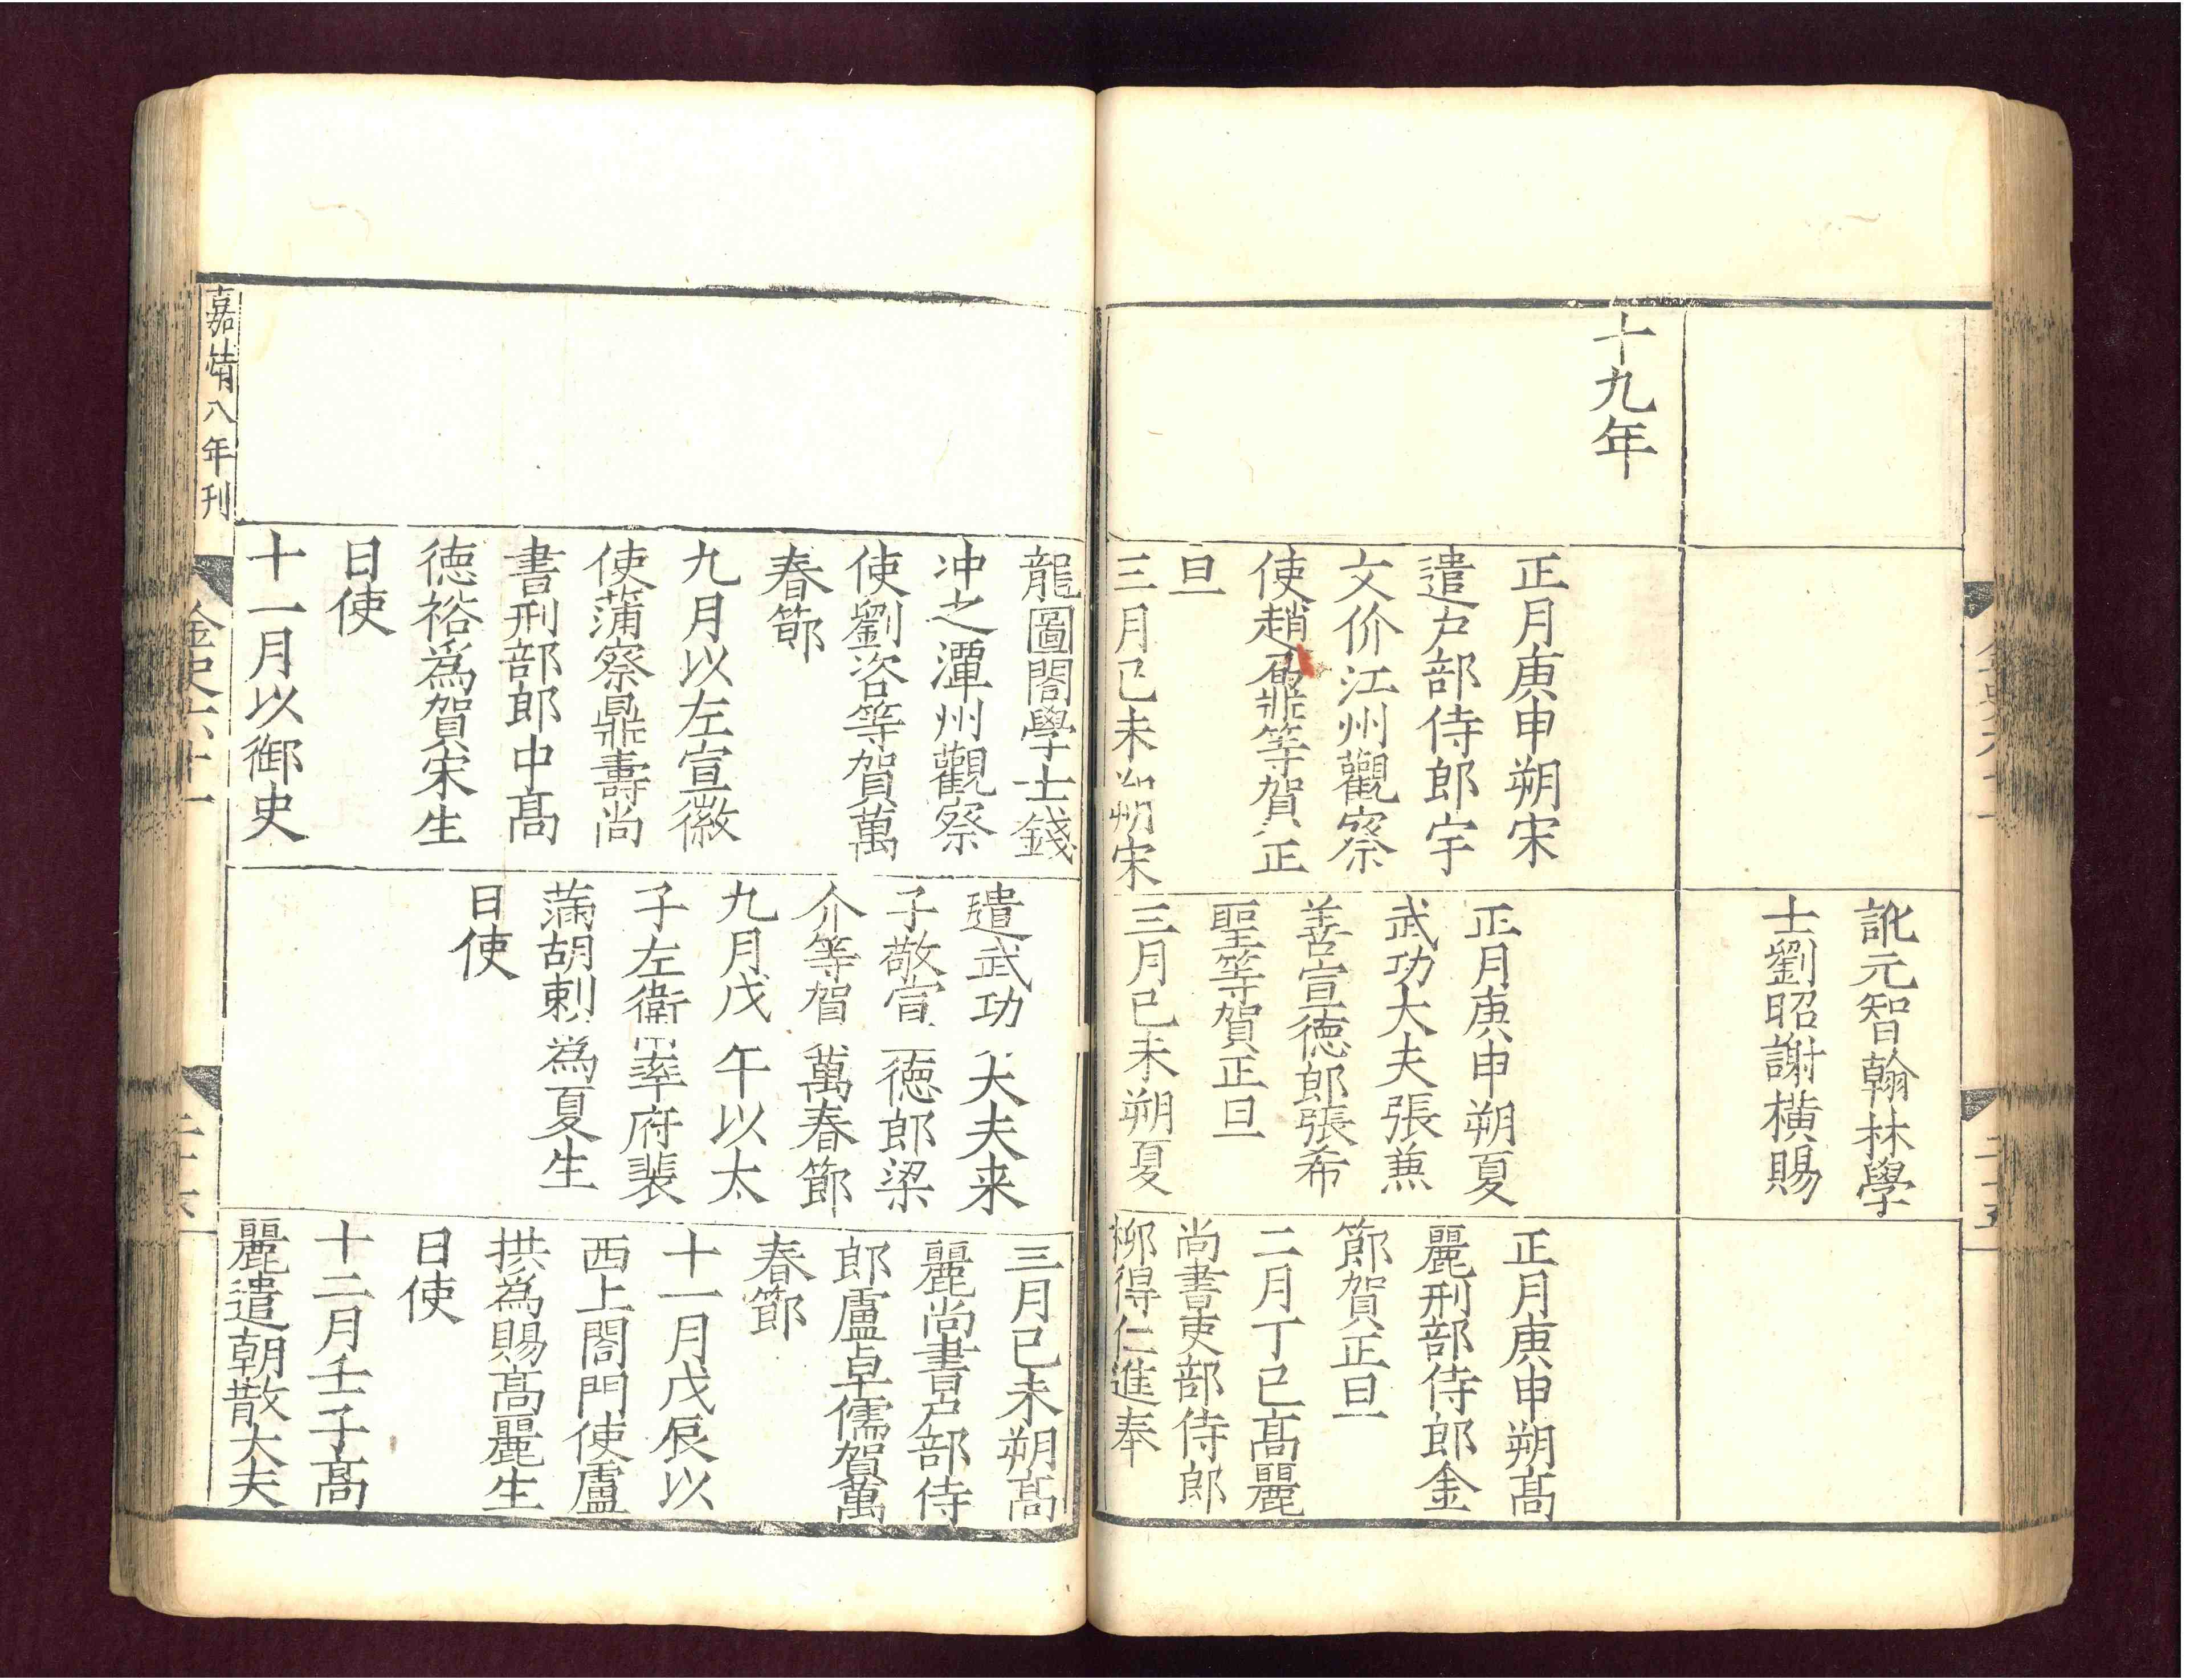 訛元智翰林學
士劉昭謝橫賜
十九年
正月庚申朔宋
遣户部侍郎宇
文价江州觀察
使趙鼐等賀正
旦
三月己未朔宋
正月庚申朔夏
武功大夫張兼
善宣德郎張希
聖等賀正旦
三月己未朔夏
正月庚申朔髙
麗刑部侍郎金
節賀正旦
二月丁巳髙麗
尚書吏部侍郎
柳得仁進奉
龍圖閣學士錢
冲之潭州觀察
使劉咨等賀萬
春節
九月以左宣徽
使蒲察鼎壽尚
書刑部郎中髙
德裕爲賀宋生
日使
十一月以御史
遣武功大夫来
子敬宣德郎梁
介等賀萬春節
九月戊午以太
子左衛率府裴
滿胡剌為夏生
日使
三月己未朔髙
麗尚書户部侍
郎盧卓儒賀萬
春節
十一月戊辰以
西上閤門使盧
拱為賜髙麗生
日使
十二月壬子髙
麗遣朝散大夫
嘉靖八年刊
金史六十一
二十六